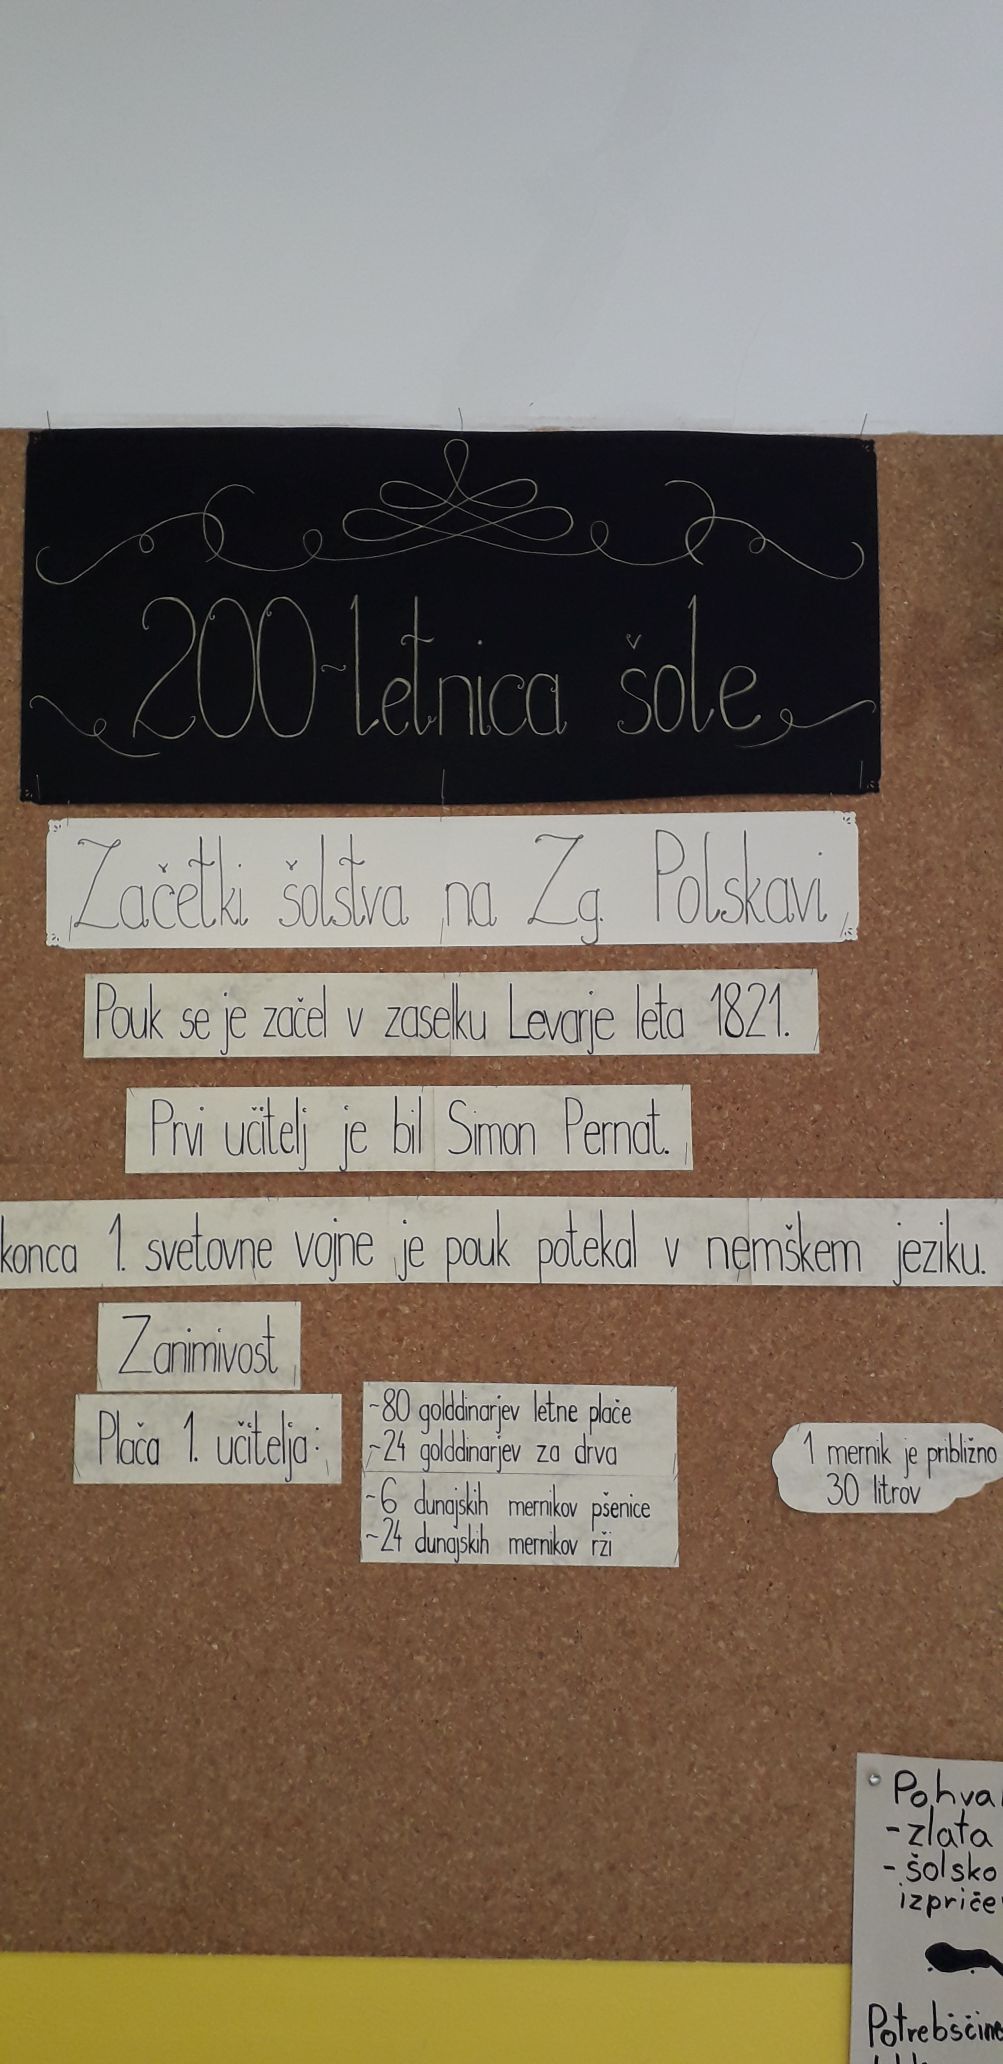 200-letnica šole
Začetki šolstva na Zg. Polskavi
Pouk se je začel v zaselku Levarje leta 1821.
Prvi učitelj je bil Simon Pernat.
konca 1. svetovne vojne je pouk potekal v nemškem jeziku.
Zanimivost
Plača 1. učitelja:
-80 golddinarjev letne plače
-24 golddinarjev za drva
-6 dunajskih mernikov pšenice
-24 dunajskih mernikov rži
1 mernik je približno
30 litrov
- zlata
- šolsko